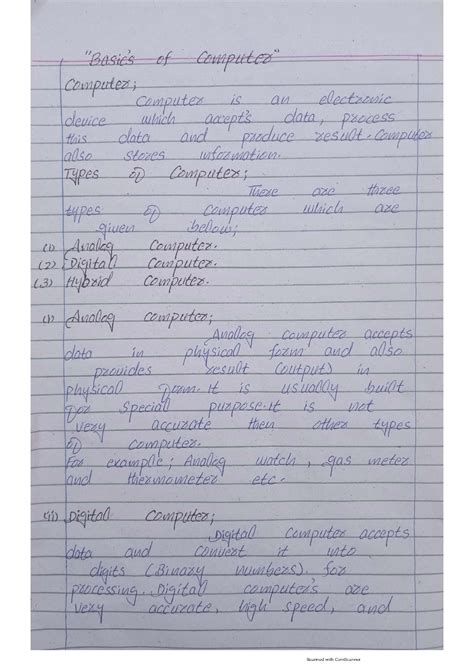 "Basic's of Computer"
Computer;
Computer is an electronic
device which accept's data, process
this data and produce result. Computer
also stores information.
Types of Computer;
There are three
types of computer which are
given below;
(1) Analog Computer.
(2) Digital Computer.
(3) Hybrid Computer.
(i) Analog Computer;
Analog computer accepts
data in physical form and also
provides result (output) in
physical form. It is usually built
for special purpose. It is not
very accurate then other types
of computer.
For example; Analog watch, gas meter
and thermometer etc.
(ii) Digital Computer;
Digital Computer accepts
data and convert it into
digits (Binary numbers). for
processing. Digital computer's are
very accurate, high speed, and
Scanned with CamScanner